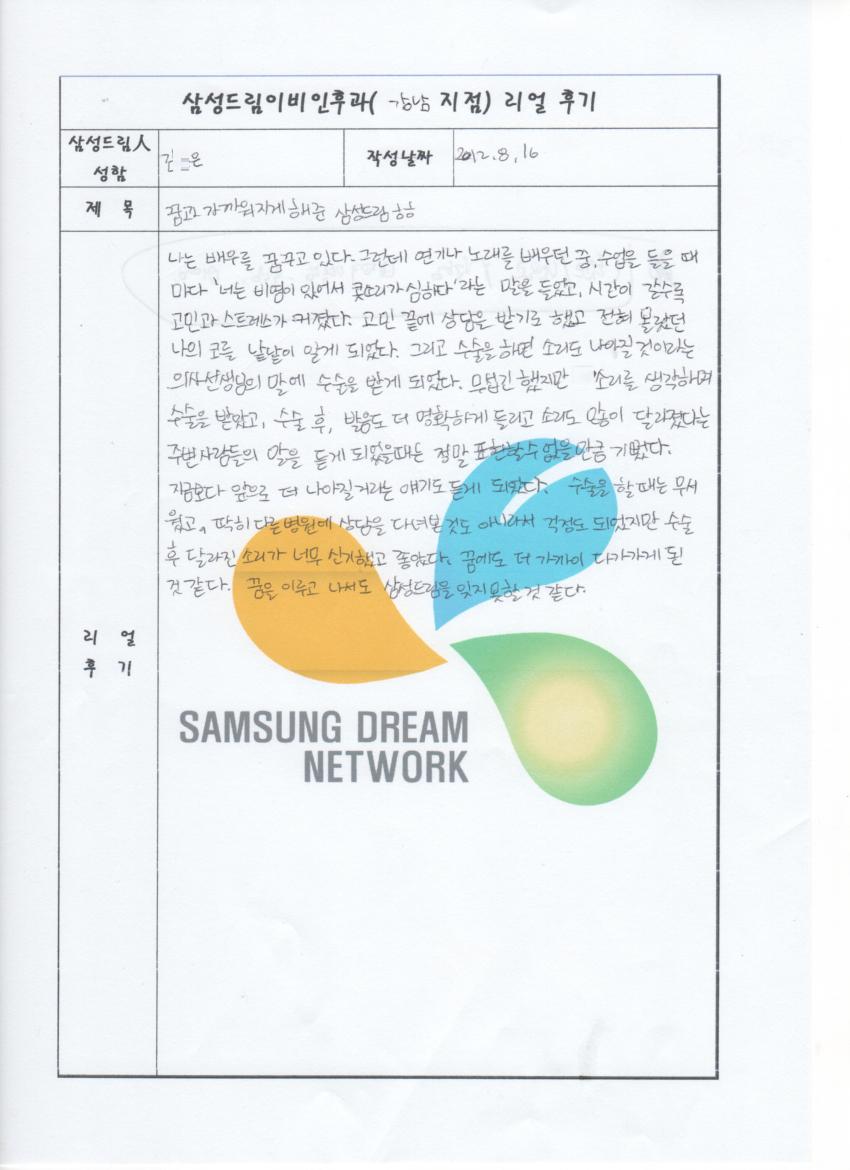 삼성드림이비인후과( 강남 지점) 리얼 후기
삼성드림人 성함
김 은
작성날짜
2012.8.16
제 목
꿈과 가까워지게 해준 삼성드림ㅎㅎ
리 얼 후 기
나는 배우를 꿈꾸고 있다. 그런데 연기나 노래를 배우던 중, 수업을 들을 때
마다 '너는 비염이 있어서 콧소리가 심하다'라는 말을 들었고, 시간이 갈수록
고민과 스트레스가 커졌다. 고민 끝에 상담을 받기로 했고 전혀 몰랐던
나의 코를 낱낱이 알게 되었다. 그리고 수술을 하면 소리도 나아질 것이라는
의사선생님의 말에 수술을 받게 되었다. 무섭긴 했지만 '소리를 생각하며
수술을 받았고, 수술 후, 발음도 더 명확하게 들리고 소리도 많이 달라졌다는
주변사람들의 말을 듣게 되었을때는 정말 표현할수 없을 만큼 기뻤다.
지금보다 앞으로 더 나아질거라는 얘기도 듣게 되었다. 수술을 할 때는 무서
웠고, 딱히 다른 병원에 상담을 다녀본 것도 아니라서 걱정도 되었지만 수술
후 달라진 소리가 너무 신기했고 좋았다. 꿈에도 더 가까이 다가가게 된
것 같다. 꿈을 이루고 나서도 삼성드림을 잊지 못할 것 같다.
SAMSUNG DREAM
NETWORK